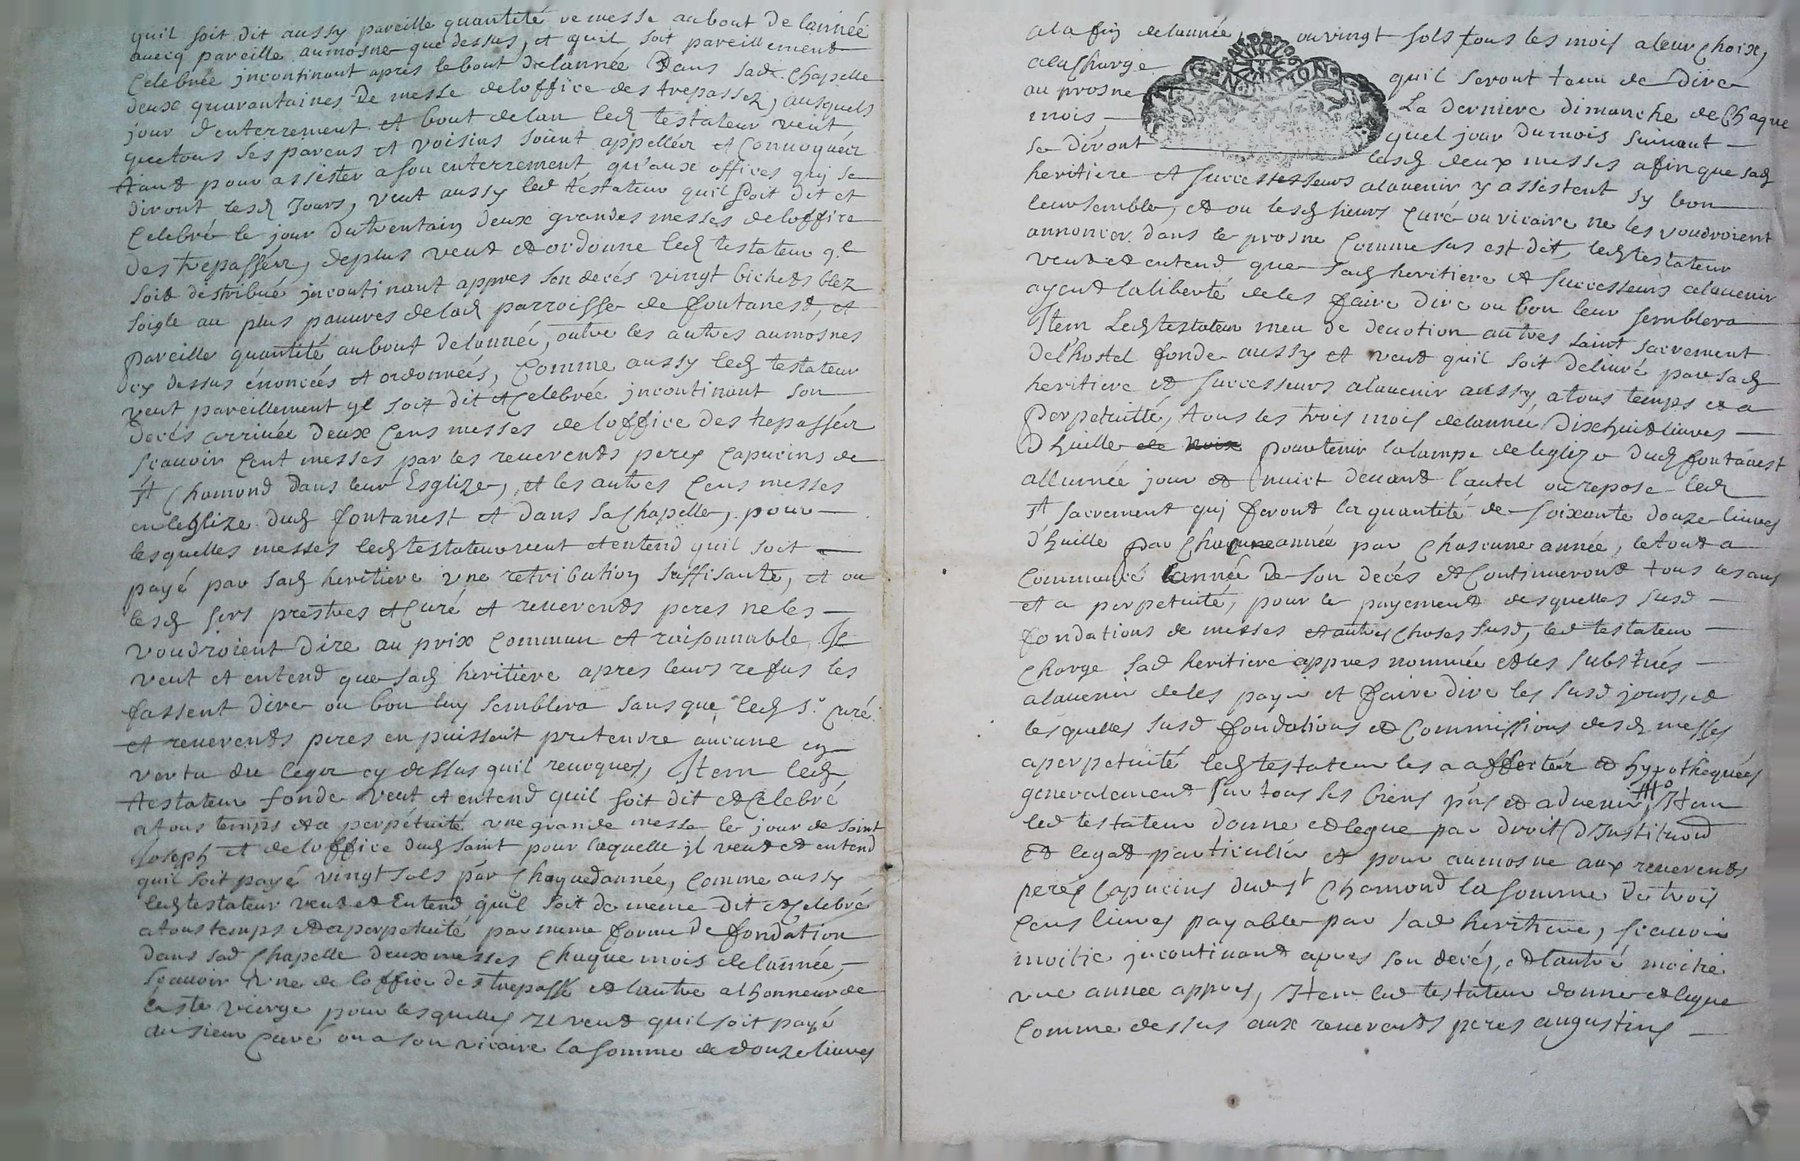 quil soit dit aussy pareille quantité de messe au bout de lannée
avecq pareille aumosne que dessus, et quil soit pareillement
Celebrée jncontinant apres le bout de lannée Dans sade Chapelle
deux quarantaines de messe deloffice des trepassez, ausquels
jour d'enterrement et bout delan led testateur veut
que tous ses parens et voisins soint appellér et Convoquér
tant pour assister a son enterrement, qu'aux offices quj se
diront lesd Jours, veut aussy led testateur quil soit dit et
Celebré le jour du trentain deux grandes messes deloffice
des trepassér, deplus veut et ordonne led testateur ql
soit distribué jncontinant appres son decés vingt bichets blez
soigle au plus pauvres delad parroisse de fontanest, et
pareille quantité au bout delannée, outre les autres aumosnes
cy dessus énoncées et ordonnées, Comme aussy led testateur
veut pareillement ql soit dit et Celebrée jncontinant son
decés arrivée deux Cens messes deloffice des trepassér
scavoir Cent messes par les reverends peres Capucins de
st Chamond dans leur Esglize, et les autres Cens messes
en leglize dud fontanest et dans sa Chapelle, pour
lesquelles messes led testateur veut et entend quil soit
payé par sad heritiere vne retribution suffisante, et ou
lesd srs prestres et Curé et reverends peres ne les
voudroient dire au prix Commun et raisonnable Il
veut et entend que sad heritiere apres leurs refus les
fassent dire ou bon luy semblera sans que led sr Curé
et reverends peres en puissent pretendre aucune en
vertu du leger cy dessus quil revoques, Item led
testateur fonde veut et entend quil soit dit et Celebré
a tous temps et a perpetuité vne grande messe le jour de saint
Joseph et deloffice dud saint pour laquelle jl veut et entend
quil soit payé vingt sols par Chaque année, Comme aussy
led testateur veut et Entend quil soit de meme dit et Celebré
a tous temps et a perpetuité par meme forme de fondation
dans sad Chapelle deux messes Chaque mois de lannée,
scavoir vne de loffice des trepassé et lautre a lhonneur de
la ste vierge pour lesquelles Il veut quil soit payé
au sieur Curé ou a son vicaire la somme de douze livres
ala fin delannée, ou vingt sols tous les mois a leur Choix,
ala Charge quil seront tenu de dire
au prosne La derniere dimanche de Chaque
mois quel jour du mois suivant
se diront lesd deux messes afin que sad
heritiere et successesseurs alavenir y assistent sy bon
leur semble, et ou lesd sieurs Curé ou vicaire ne les voudroient
annoncer dans le prosne Comme sus est dit, led testateur
veut et entend que sad heritiere et successeurs alavenir
ayent la liberté deles faire dire ou bon leur semblera
Item Led testateur meu de devotion au tres saint sacrement
del'hostel fonde aussy et veut quil soit delivré par sad
heritiere et successeurs alavenir aussy a tous temps et a
perpetuitté, tous les trois mois delannée dixhuit livres
d'huille de noix pour tenir la lampe de leglize dud fontanest
allumée jour et nuict devant l'autel ou repose led
st sacrement quj feront la quantité de soixante douze livres
d'huille par Chaqune année par Chascune année, letout a
Commencé lannée de son decés et Continueront tous les ans
et a perpetuité, pour le payement desquelles susd
fondations de messes et autres Choses susd, led testateur
Charge sad heritiere appres nommée et les substitués
alavenir deles payer et faire dire les susd jours, et
lesquelles susd fondations et Commissions desd messes
a perpetuité led testateur les a affectér et hypothequées
generalement sur tous ses biens pns et advenir, Item
led testateur donne et legue par droit d'Institution
et legat particulier et pour aumosne aux reverends
peres Capucins dud st Chamond la somme de trois
Cens livres payable par sad heritiere, scavoir
moitié jncontinant apres son decés, et lautre moitié
vne année appres, Item led testateur donne et legue
Comme dessus aux reverends peres augustins